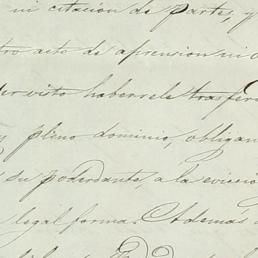 ni citacion de parte, y
tro acto de aprension ni
visto haberrele trasferi
y pleno dominio, obligan
su poderdante, a la eviccio
legal forma. Ademas